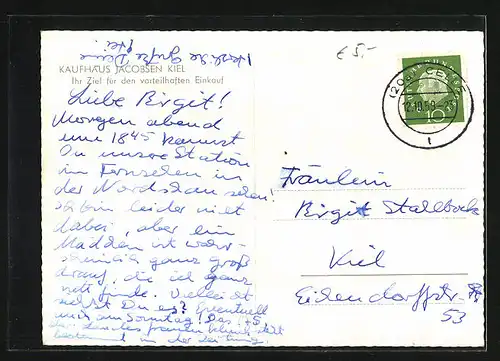 Herzliche Grüße Deine
KAUFHAUS JACOBSEN KIEL
Ihr Ziel für den vorteilhaften Einkauf
£ 5,-
(20a) CELLE
12.10.59
10
Liebe Birgit!
Morgen abend
um 1845 kannst
Du unsre Station
im Fernsehen in
der Nordschau sehen!
Ich bin leider nicht
dabei, aber ein
Mädchen ist wahr-
scheinlich ganz groß
drauf, die ich ganz
nett finde. Vielleicht
siehst Du es? Eventuell
am Sonntag! Das
bestimmt in der Zeitung.
Fräulein
Birgit Stallbock
Kiel
Eichendorffstr.
53